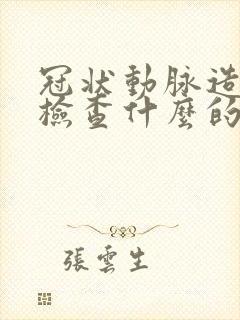 冠狀動脈造
檢查什麼的
張雲生